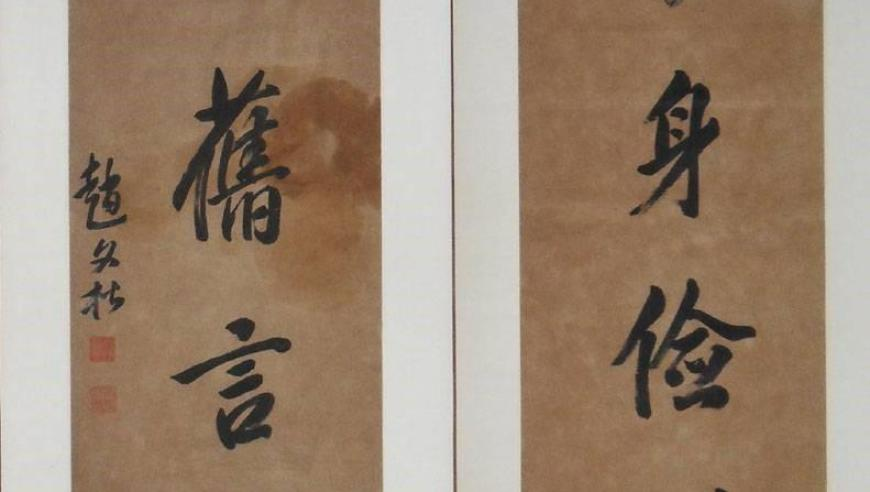 身儉
舊言
趙文楷